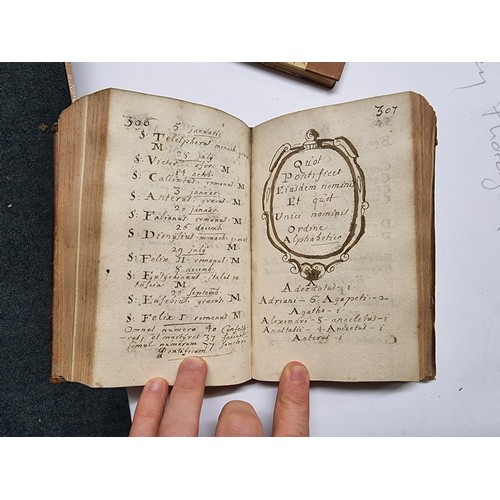 306
5 januarii
S: Telesphorus monach
M
S: Victor
S: Calixtus romanus M
3 januar
S: Anterus græcus M
20 januar
S: Fabianus romanus M
26 decemb
S: Dionysius monach
29 july
S: Felix II romanus M
8 decemb
S: Eutychianus
M
26 septemb
S: Eusebius græcus M
S: Felix I romanus
Omnes numero 40
martyres 37
simul numerum 77
Pontificum
307
Quot
Pontifices
Eiusdem nominis
Et quot
Unici nominis
Ordine
Alphabetico
Adeodatus - i
Adriani - 6 Agapeti - 2
Agatho - i
Alexandri - 8 anacletus - i
Anastasii - 4 Anicetus - i
Anterus - i